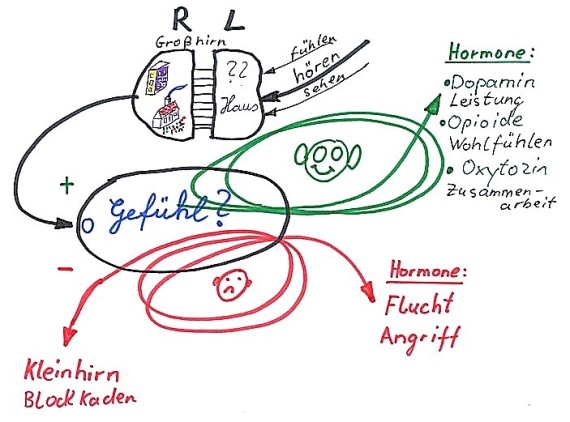 R L
Großhirn
??
Haus
fühlen
hören
sehen
Hormone:
•Dopamin
Leistung
•Opioide
Wohlfühlen
• Oxytozin
Zusammen-
arbeit
+
O Gefühl?
−
Hormone:
Flucht
Angriff
Kleinhirn
Blockkaden